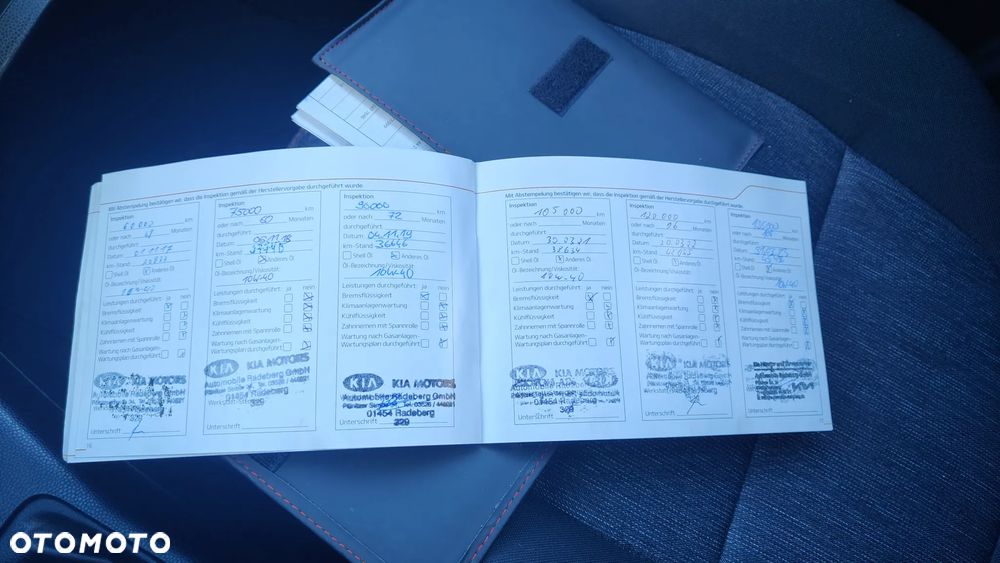 Mit Abstempelung bestätigen wir, dass die Inspektion gemäß der Herstellervorgabe durchgeführt wurde.
Inspektion
60000 km
oder nach Monaten
durchgeführt
Datum
km-Stand
Shell Öl Anderes Öl
Öl-Bezeichnung/Viskosität:
Leistungen durchgeführt: ja nein
Bremsflüssigkeit
Klimaanlagenwartung
Kühlflüssigkeit
Zahnriemen mit Spannrolle
Wartung nach Gasanlagen-
Wartungsplan durchgeführt
KIA KIA MOTORS
Automobile Radeberg GmbH
Unterschrift
16
Inspektion
75000 km
oder nach 60 Monaten
durchgeführt
Datum 06.11.18
km-Stand
Shell Öl Anderes Öl
Öl-Bezeichnung/Viskosität:
10W-40
Leistungen durchgeführt: ja nein
Bremsflüssigkeit
Klimaanlagenwartung
Kühlflüssigkeit
Zahnriemen mit Spannrolle
Wartung nach Gasanlagen-
Wartungsplan durchgeführt
KIA KIA MOTORS
Automobile Radeberg GmbH
01454 Radeberg
329
Inspektion
90000 km
oder nach 72 Monaten
durchgeführt
Datum 04.11.19
km-Stand 36646
Shell Öl Anderes Öl
Öl-Bezeichnung/Viskosität:
10W-40
Leistungen durchgeführt: ja nein
Bremsflüssigkeit
Klimaanlagenwartung
Kühlflüssigkeit
Zahnriemen mit Spannrolle
Wartung nach Gasanlagen-
Wartungsplan durchgeführt
KIA KIA MOTORS
Automobile Radeberg GmbH
01454 Radeberg
329
Unterschrift
Mit Abstempelung bestätigen wir, dass die Inspektion gemäß der Herstellervorgabe durchgeführt wurde.
Inspektion
105 000 km
oder nach Monaten
durchgeführt
Datum 30.03.21
km-Stand 38634
Shell Öl Anderes Öl
Öl-Bezeichnung/Viskosität:
10W-40
Leistungen durchgeführt: ja nein
Bremsflüssigkeit
Klimaanlagenwartung
Kühlflüssigkeit
Zahnriemen mit Spannrolle
Wartung nach Gasanlagen-
Wartungsplan durchgeführt
KIA
01454 Radeberg
329
Unterschrift
Inspektion
120 000 km
oder nach 96 Monaten
durchgeführt
Datum
km-Stand
Shell Öl Anderes Öl
Öl-Bezeichnung/Viskosität:
Leistungen durchgeführt: ja nein
Bremsflüssigkeit
Klimaanlagenwartung
Kühlflüssigkeit
Zahnriemen mit Spannrolle
Wartung nach Gasanlagen-
Wartungsplan durchgeführt
Unterschrift
Inspektion
km
oder nach Monaten
durchgeführt
Datum
km-Stand
Shell Öl Anderes Öl
Öl-Bezeichnung/Viskosität:
Leistungen durchgeführt: ja nein
Bremsflüssigkeit
Klimaanlagenwartung
Kühlflüssigkeit
Zahnriemen mit Spannrolle
Wartung nach Gasanlagen-
Wartungsplan durchgeführt
Unterschrift
OTOMOTO